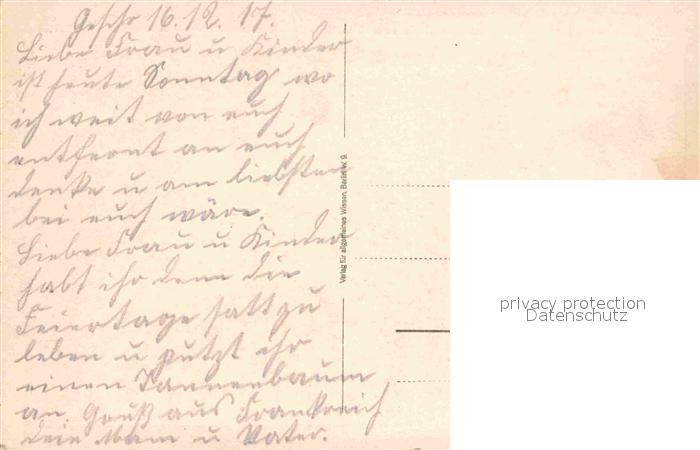 Geschr 16.12.17.
Liebe Frau u Kinder
ist heute Sonntag wo
ich weit von euch
entfernt an euch
denke u am liebsten
bei euch wäre.
Liebe Frau u Kinder
habt ihr denn die
Feiertage satt zu
leben u putzt ihr
einen Tannenbaum
an. Gruß aus Frankreich
Dein Mann u Vater.
Verlag für allgemeines Wissen, Berlin W. 9.
privacy protection
Datenschutz